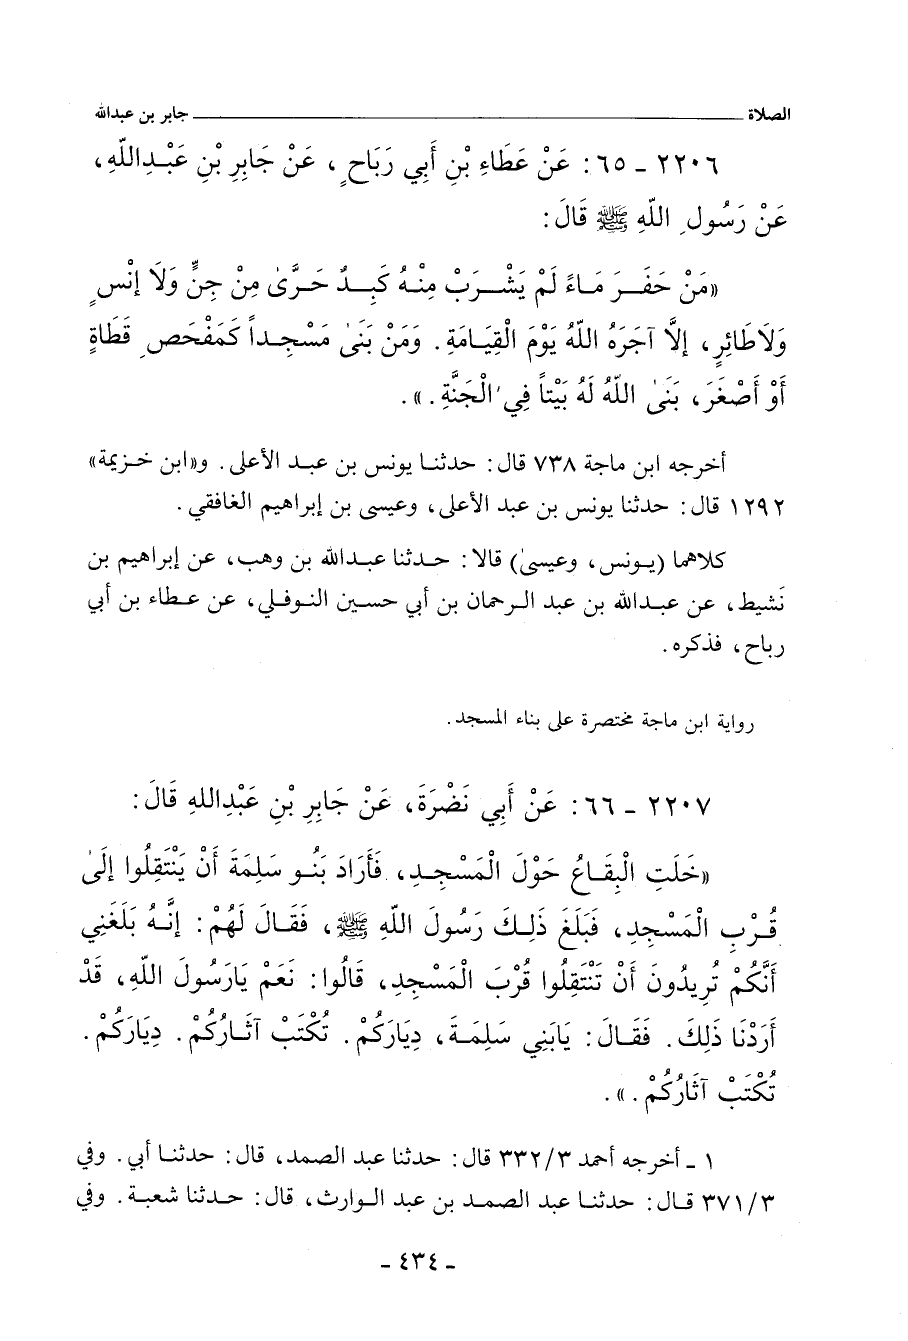 الصلاة ــــــــــــــــ جابر بن عبدالله
٢٢٠٦ - ٦٥ : عَنْ عَطَاءِ بْنِ أَبِي رَبَاحٍ ، عَنْ جَابِرِ بْنِ عَبْدِاللّهِ،
عَنْ رَسُولِ اللّهِ ﷺ قَالَ:
«مَنْ حَفَرَ مَاءً لَمْ يَشْرَبْ مِنْهُ كَبِدٌ حَرَّىٰ مِنْ جِنٍّ وَلَا إِنْسٍ
وَلَاطَائِرٍ، إِلَّا آجَرَهُ اللّهُ يَوْمَ الْقِيَامَةِ . وَمَنْ بَنَىٰ مَسْجِداً كَمَفْحَصِ قَطَاةٍ
أَوْ أَصْغَرَ، بَنَىٰ اللّهُ لَهُ بَيْتاً فِي الْجَنَّةِ . » .
أخرجه ابن ماجة ٧٣٨ قال : حدثنا يونس بن عبد الأعلى . و«ابن خزيمة»
١٢٩٢ قال : حدثنا يونس بن عبد الأعلى، وعيسى بن إبراهيم الغافقي .
كلاهما (يونس، وعيسىٰ) قالا : حدثنا عبدالله بن وهب، عن إبراهيم بن
نَشيط، عن عبدالله بن عبد الرحمان بن أبي حسين النوفلي، عن عطاء بن أبي
رباح، فذكره .
رواية ابن ماجة مختصرة على بناء المسجد .
٢٢٠٧ - ٦٦ : عَنْ أَبِي نَضْرَةَ، عَنْ جَابِرِ بْنِ عَبْدِاللهِ قَالَ:
«خَلَتِ الْبِقَاعُ حَوْلَ الْمَسْجِدِ، فَأَرَادَ بَنُو سَلِمَةَ أَنْ يَنْتَقِلُوا إِلَىٰ
قُرْبِ الْمَسْجِدِ، فَبَلَغَ ذلِكَ رَسُولَ اللّهِ ﷺ، فَقَالَ لَهُمْ : إِنَّهُ بَلَغَنِي
أَنَّكُمْ تُرِيدُونَ أَنْ تَنْتَقِلُوا قُرْبَ الْمَسْجِدِ، قَالُوا: نَعَمْ يَارَسُولَ اللّهِ، قَدْ
أَرَدْنَا ذلِكَ . فَقَالَ: يَابَنِي سَلِمَةَ، دِيَارَكُمْ . تُكْتَبْ آثَارُكُمْ . دِيَارَكُمْ .
تُكْتَبْ آثَارُكُمْ . » .
١ - أخرجه أحمد ٣٣٢/٣ قال : حدثنا عبد الصمد، قال : حدثنا أبي . وفي
٣٧١/٣ قال : حدثنا عبد الصمد بن عبد الوارث، قال : حدثنا شعبة . وفي
- ٤٣٤ -